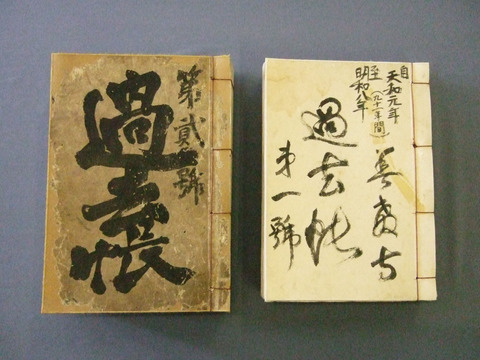 第貳號
過去帳
自天和元年
至明和八年
(九十一年間)
寺
過去帳
第一號